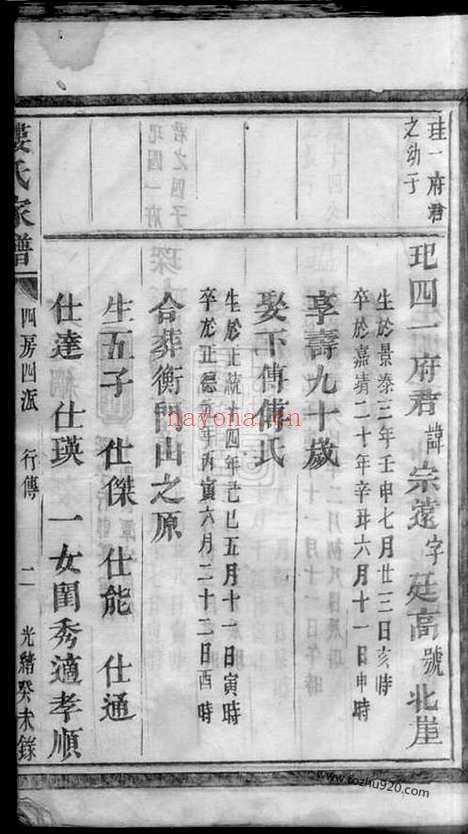 珪一府君
之幼子
玘四一府君諱宗遠字廷高號北崖
生於景泰三年壬申七月廿三日亥時
卒於嘉靖二十年辛丑六月十一日申時
享壽九十歲
娶下傅傅氏
生於正統十四年己巳五月十一日寅時
卒於正德元年丙寅六月二十二日酉時
合葬衡門山之原
生五子 仕傑 仕能 仕通
仕達 仕瑛 一女閨秀適孝順
婁氏家譜
四房四派 行傳 二 光緒癸未錄
nayona.cn
www.tozhu920.com